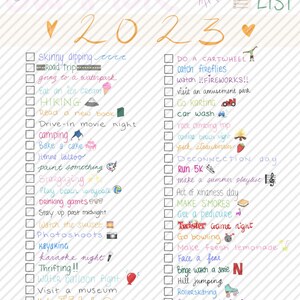 LIST
2023
Skinny dipping
Road Trip
going to a waterpark
HIKING
Read a new book
Drive-in movie night
camping
Bake a cake
henna tattoo
paint something
Scrapbooking
thinking games
Stay up past midnight
Photoshoots
kayaking
karaoke night
Thrifting!!
water balloon fight
Visit a museum
DO A CARTWHEEL
catch fireflies
watch FIREWORKS!!
visit an amusement park
Go karting
car wash
DISCONNECTION day
Run 5k
make a summer playlist
Act of kindness day
MAKE SMORES
Get a pedicure
Twister Game night
Go bowling
Make fresh lemonade
Face a fear
Binge watch a series
Hot air balloon